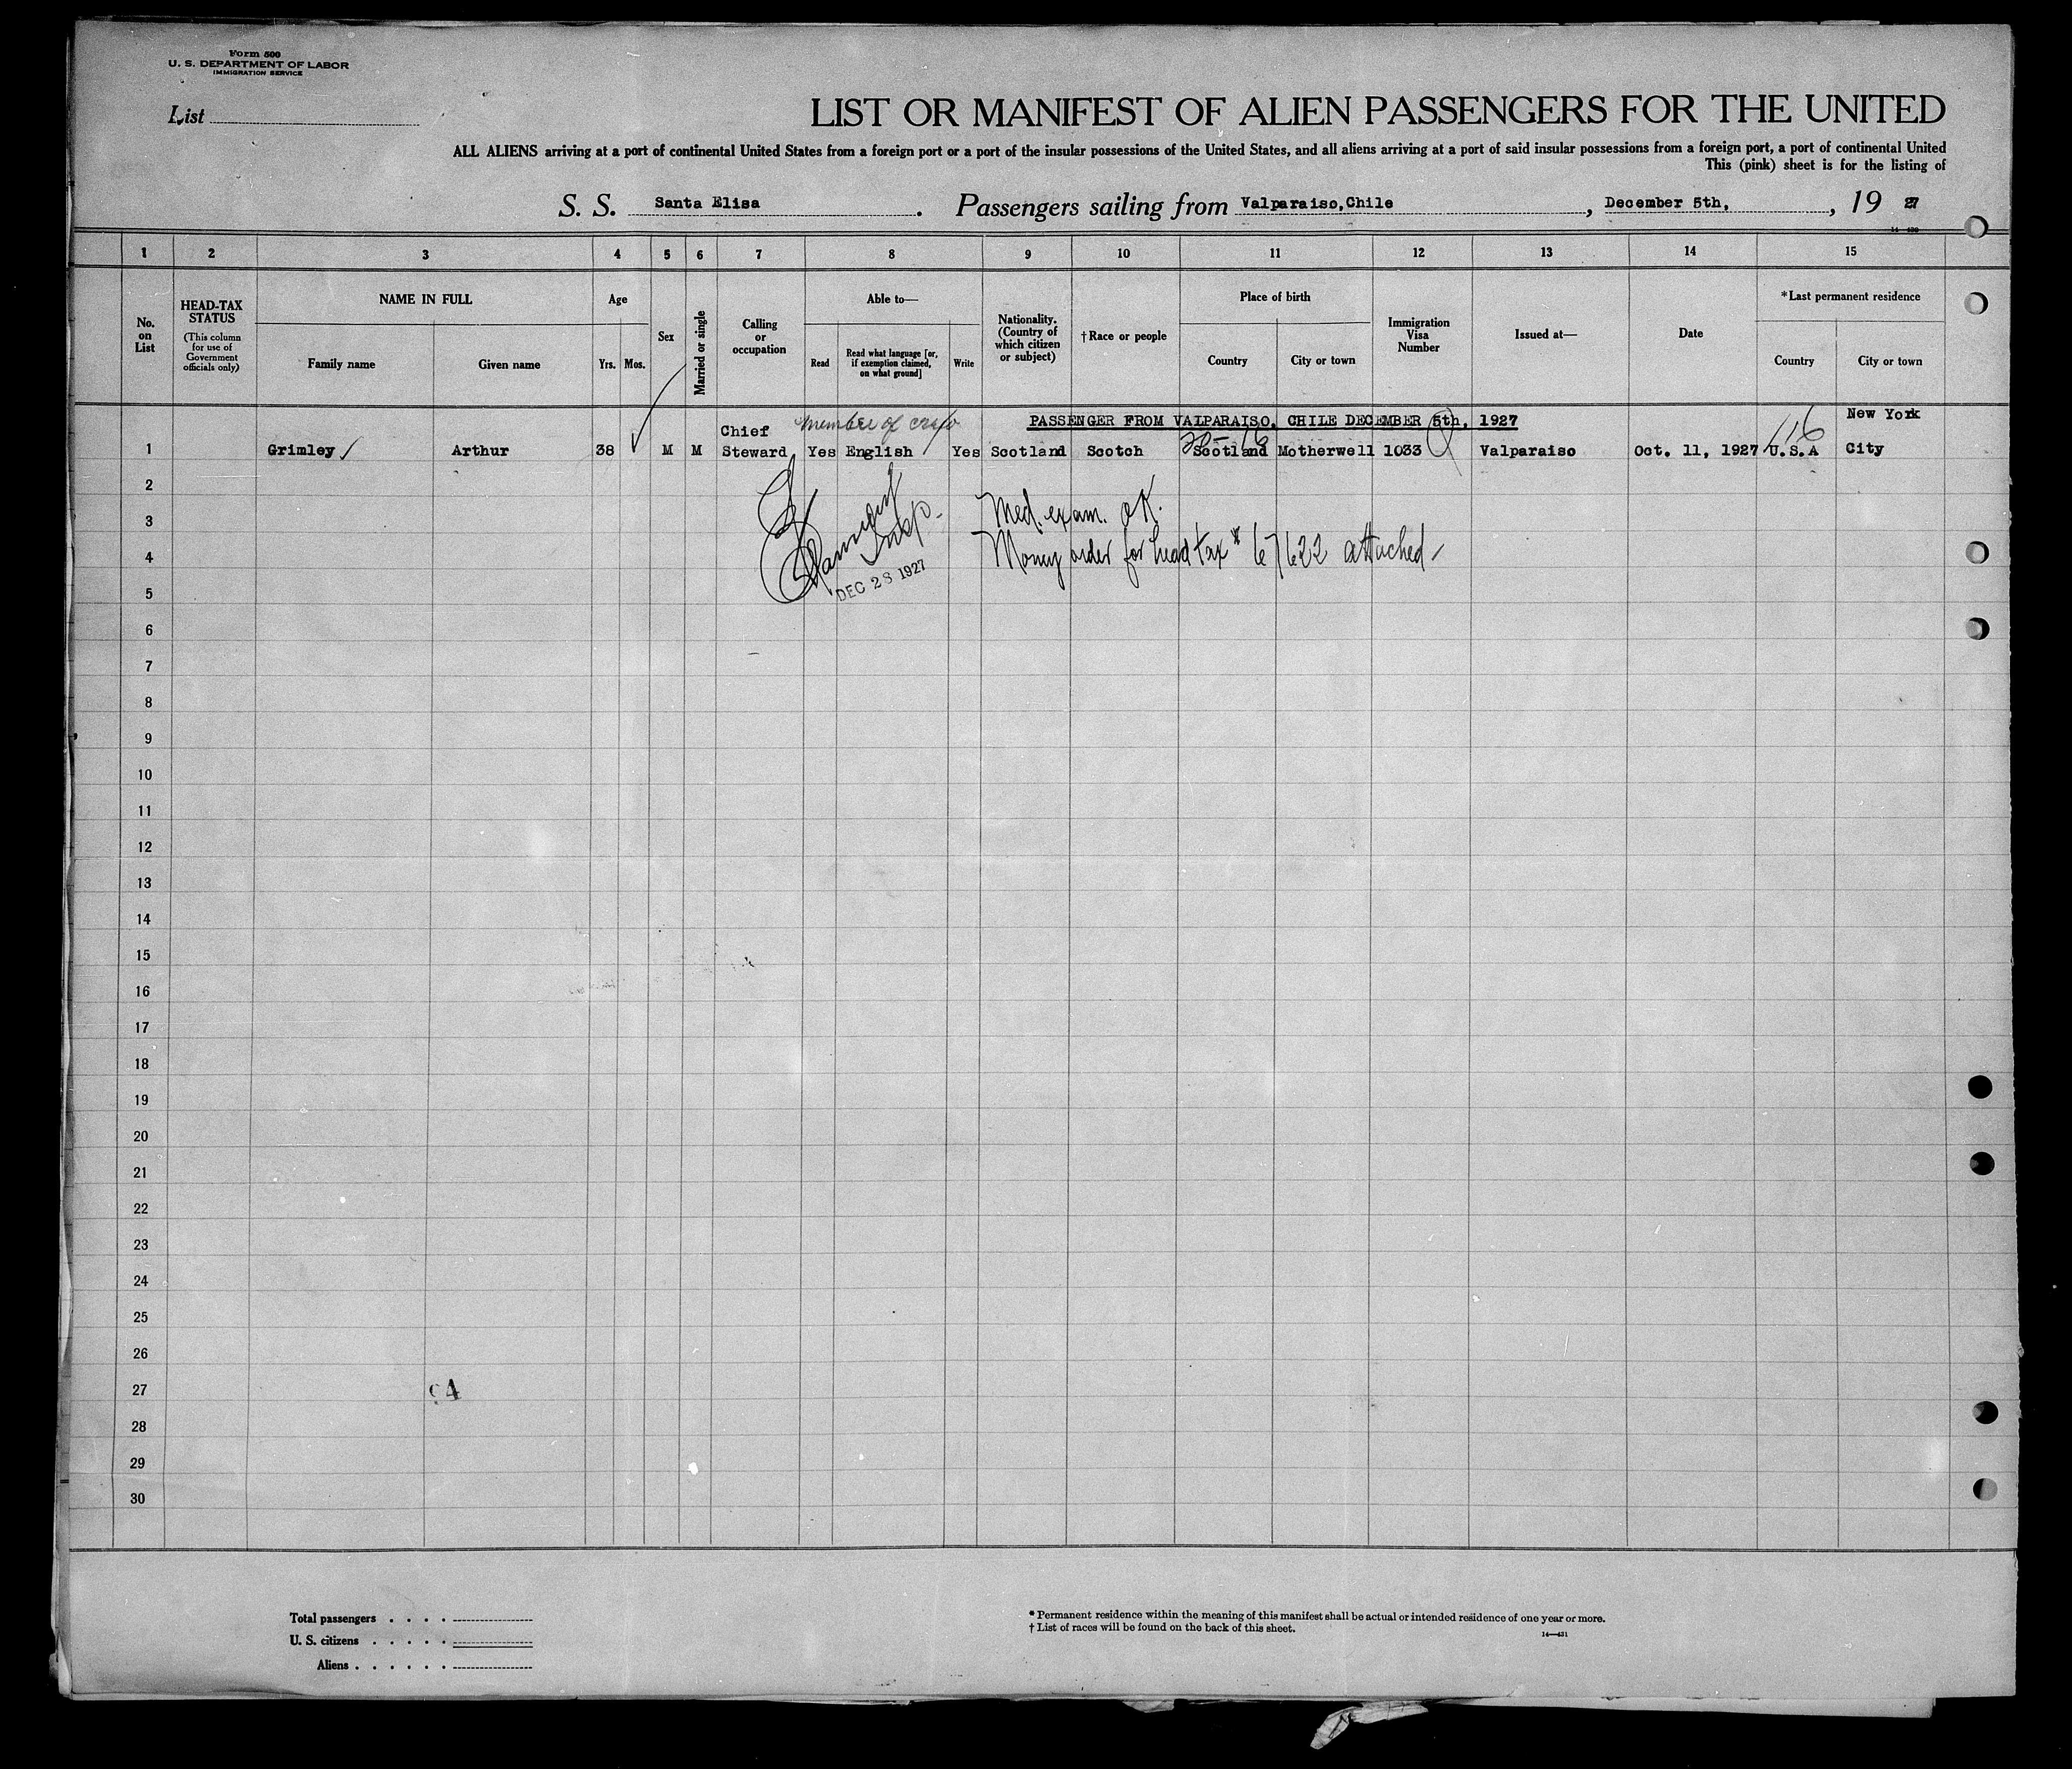 Form 500
U. S. DEPARTMENT OF LABOR
IMMIGRATION SERVICE
List
LIST OR MANIFEST OF ALIEN PASSENGERS FOR THE UNITED
ALL ALIENS arriving at a port of continental United States from a foreign port or a port of the insular possessions of the United States, and all aliens arriving at a port of said insular possessions from a foreign port, a port of continental United
This (pink) sheet is for the listing of
S. S. Santa Elisa. Passengers sailing from Valparaiso,Chile, December 5th,, 19 27
1 2 3 4 5 6 7 8 9 10 11 12 13 14 15
No. on List
HEAD-TAX STATUS
(This column for use of Government officials only)
NAME IN FULL
Family name Given name
Age
Yrs. Mos.
Sex
Married or single
Calling or occupation
Able to—
Read
Read what language [or, if exemption claimed, on what ground]
Write
Nationality. (Country of which citizen or subject)
†Race or people
Place of birth
Country City or town
Immigration Visa Number
Issued at—
Date
*Last permanent residence
Country City or town
member of crew
PASSENGER FROM VALPARAISO, CHILE DECEMBER 5th, 1927
116 New York
Chief
1 Grimley Arthur 38 M M Steward Yes English Yes Scotland Scotch Scotland Motherwell 1033 Valparaiso Oct. 11, 1927 U.S.A City
2
3 Insp. Med. exam. OK.
4 Money order for head tax # 67622 attached
DEC 28 1927
5
6
7
8
9
10
11
12
13
14
15
16
17
18
19
20
21
22
23
24
25
26
27 4
28
29
30
Total passengers . . . .
U. S. citizens . . . . .
Aliens . . . . . .
* Permanent residence within the meaning of this manifest shall be actual or intended residence of one year or more.
† List of races will be found on the back of this sheet.
14—431